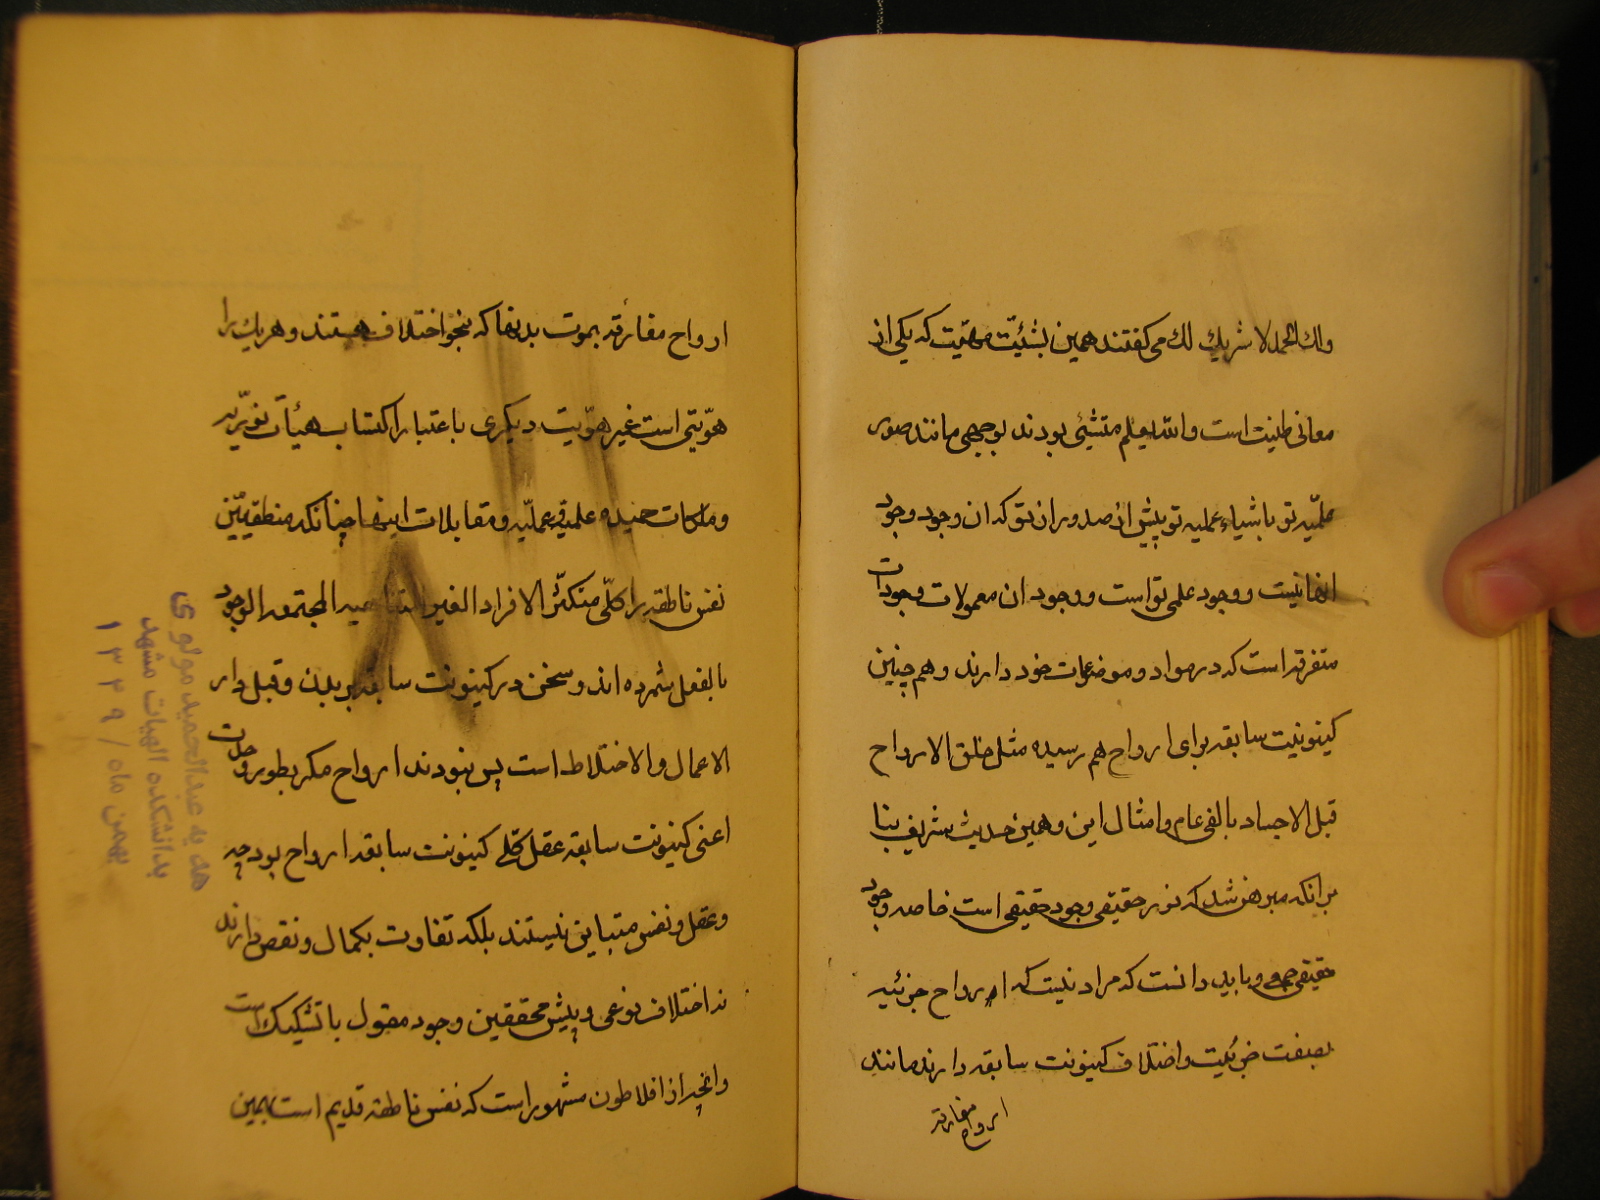 ولك الحمد لا شریك لك می کفتند همین بشئیّت مهیّت که یکی از
معانی طینت است والله یعلم متشئی بودند بوجهی مانند صور
علمّیه تو باشیاء عملیه تو پیش از صدوران تو که ان وجود وجود
انها نیست ووجود علمی تو است ووجود ان معمولات وجودات
متفرقه است که در مواد وموضوعات خود دارند وهم چنین
کینونیت سابقه برای ارواح هم رسیده مثل خلق الارواح
قبل الاجساد بالفی عام وامثال این وهمین حدیث شریف بنا
بر انکه مبرهن شد که نور حقیقی وجود حقیقی است خاصه وجود
حقیقی جمعی وباید دانست که مراد نیست که ارواح جزئیه
بصفت جزئیت واختلاف کینونت سابقه دارند مانند
ارواح مفارقه
ارواح مفارقه بموت بدنها که بنحو اختلاف هستند وهریك را
هوّیتی است غیر هوّیت دیکری باعتبار اکتساب هیئات نوریّه
وملکات حمیده علمیه وعملیّه ومقابلات اینها چنانکه منطقیّین
نفس ناطقه را کلّی متکثّر الافراد الغیر المتناهیه المجتمعه الوجود
بالفعل شمرده اند وسخن در کینونت سابقه بر بدن وقبل دار
الاعمال والاختلاط است پس نبودند ارواح مکر بطور وحدت
اعنی کینونت سابقه عقل کلّی کینونت سابقه ارواح بود چه
وعقل ونفس متباین نیستند بلکه تفاوت بکمال ونقص دارند
نه اختلاف نوعی وپیش محققین وجود مقول با تشکیك است
وانچه از افلاطون مشهور است که نفس ناطقه قدیم است بهمین
هدیه عبدالحمید مولوی
بدانشکده الهیات مشهد
بهمن ماه / ۱۳۴۹